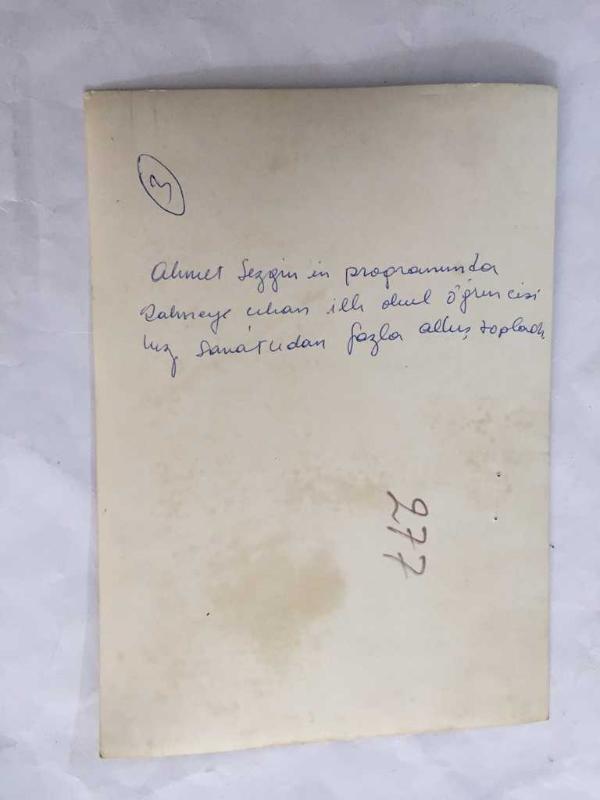 3
Ahmet Sezgin in programında
Sahneye çıkan ilk okul öğrencisi
kız, sanatçıdan fazla alkış topladı
277